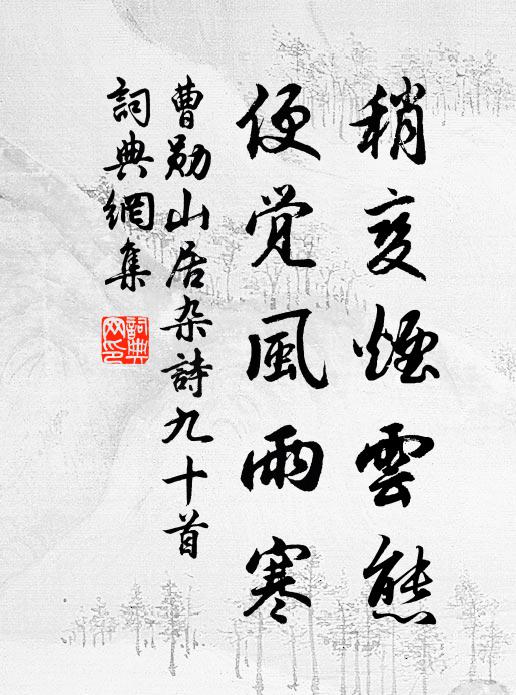 稍变煙雲態
便觉風雨寒
曹勋山居杂詩九十首
詞典網集
詞典
网印